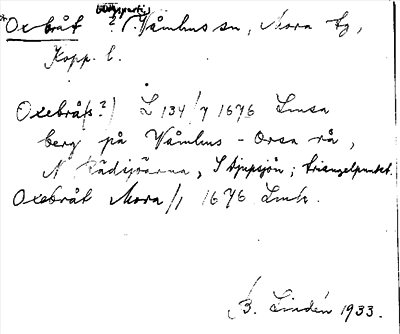 bergsparti
Oxbråt ? i Våmhus sn, Mora tg,
Kopp. l.
Oxebrå(s?) L 134/7 1676 Lmsa
berg på Våmhus - Orsa rå,
N Rädsjöarna, S Djupsjön; triangelpunkt.
Oxebråt Mora/1 1676 Lmk.
B. Lindén 1933.